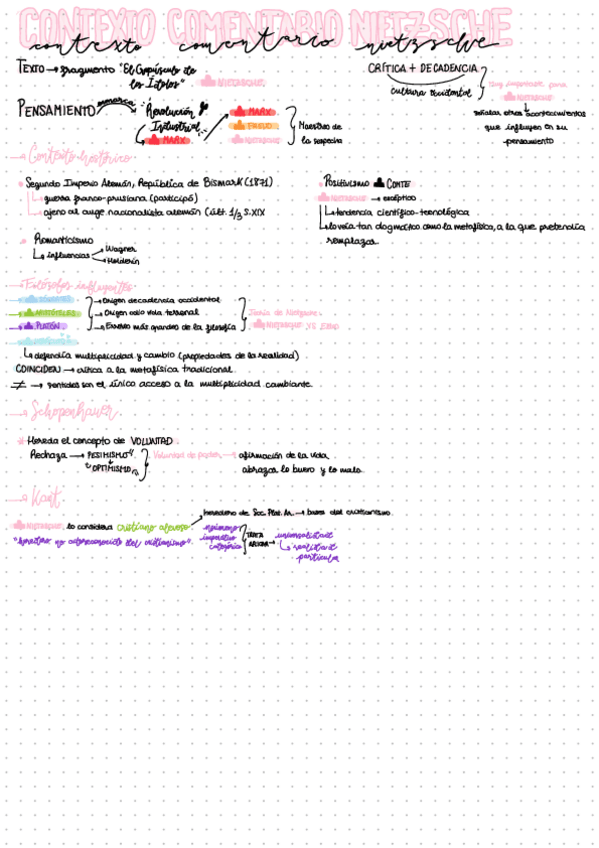 CONTEXTO COMENTARIO NIETZSCHE
contexto comentario nietzsche
TEXTO → fragmento "El Crepúsculo de los Ídolos" NIETZSCHE.
CRÍTICA + DECADENCIA
cultura occidental
Muy importante para NIETZSCHE
señalar otros acontecimientos que influyen en su pensamiento
PENSAMIENTO enmarca Revolución Industrial
MARX
MARX
FREUD
NIETZSCHE
Maestros de la sospecha
→ Contexto histórico
Segundo Imperio Alemán, República de Bismark (1871)
guerra franco-prusiana (participó)
ajeno al auge nacionalista alemán (últ. 1/3 S.XIX
Romanticismo
influencias
Wagner
Holderin
Positivismo COMTE
NIETZSCHE → escéptico
tendencia científico-tecnológica
lo veía tan dogmático como la metafísica, a la que pretendía remplazar
→ Filósofos influyentes
→ SÓCRATES → Origen decadencia occidental
→ ARISTÓTELES → Origen odio vida terrenal
→ PLATÓN → Errores más grandes de la filosofía
Teoría de Nietzsche.
defendía multiplicidad y cambio (propiedades de la realidad)
COINCIDEN → crítica a la metafísica tradicional.
≠ → sentidos son el único acceso a la multiplicidad cambiante.
→ Schopenhauer.
* Hereda el concepto de VOLUNTAD
Rechaza → PESIMISMO
"OPTIMISMO"
Voluntad de poder → afirmación de la vida.
abrazar lo bueno y lo malo.
→ Kant.
NIETZSCHE, lo considera cristiano alevoso
heredero de Soc. Plat. Ar. → bases del cristianismo.
imperativo categórico
TRATA APLICAR → universalidad
realidad particular